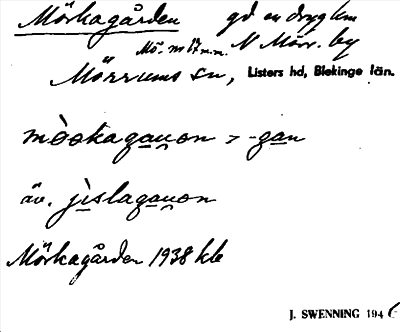 Mörkagården gd en dryg km
Mö. m 87 m.m. N Mörr. by
Mörrums sn, Listers hd, Blekinge län.
mòokagauon > -gan
äv. jislagauon
Mörkagården 1938 kbl
J. SWENNING 1946